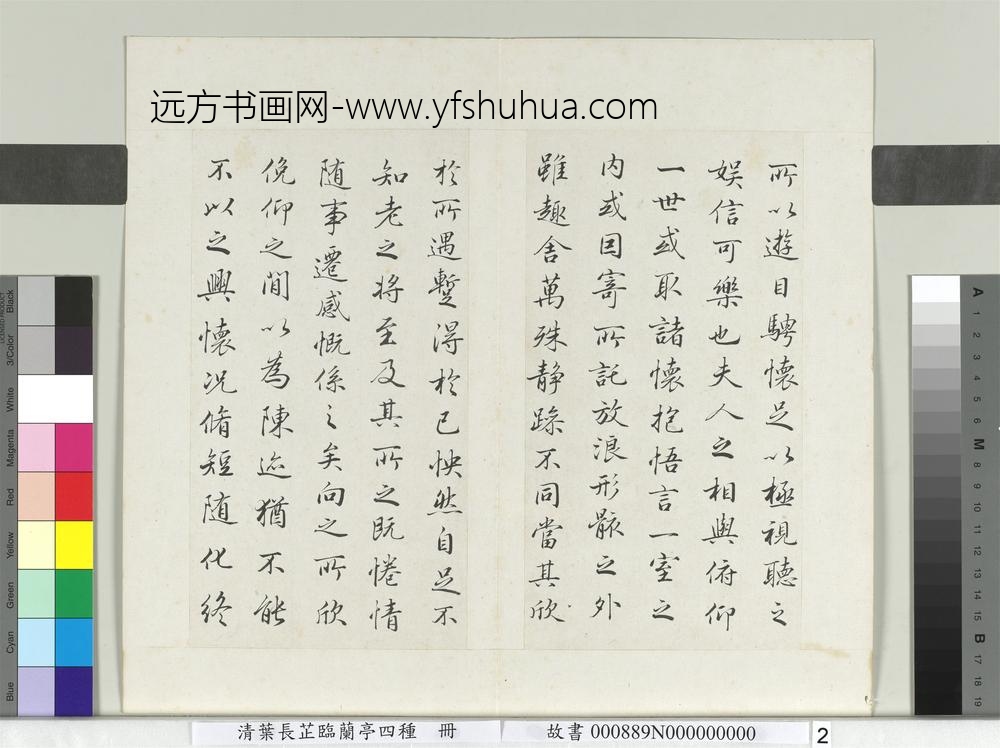 远方书画网-www.yfshuhua.com
所以遊目騁懷足以極視聽之
娛信可樂也夫人之相與俯仰
一世或取諸懷抱悟言一室之
内或因寄所託放浪形骸之外
雖趣舍萬殊静躁不同當其欣
於所遇蹔得於己怏然自足不
知老之將至及其所之既惓情
随事遷感慨係之矣向之所欣
俛仰之間以為陳迹猶不能
不以之興懷况脩短随化終
清葉長芷臨蘭亭四種 冊
故書 000889N000000000
2
Black
3/Color
White
Magenta
Red
Yellow
Green
Cyan
Blue
A
1
2
3
4
5
6
M
8
9
10
11
12
13
14
15
B
17
18
19